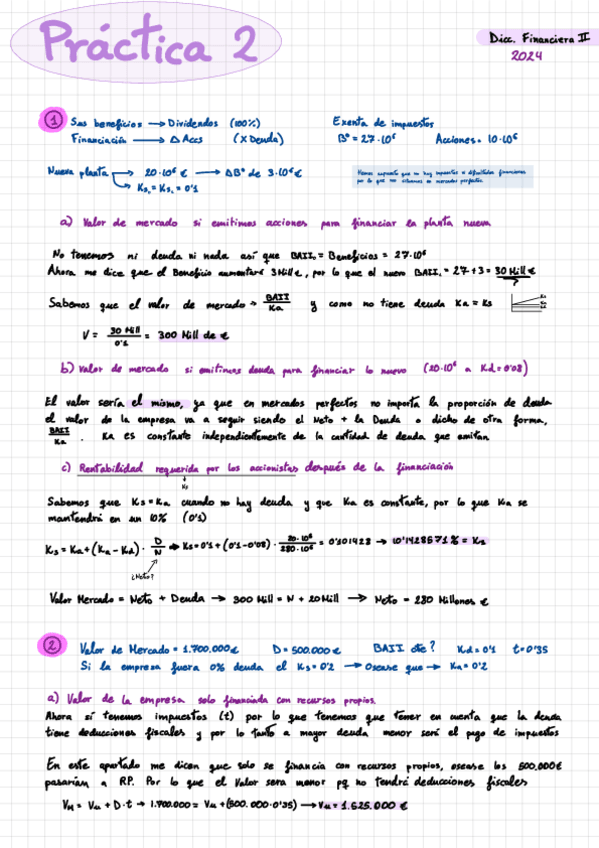 Práctica 2
Dicc. Financiera II
2024
① Sus beneficios → Dividendos (100%) Exenta de impuestos
Financiación → Δ Accs (X Deuda) Bº = 27·10⁶ Acciones = 10·10⁶
Nueva planta → 20·10⁶ € → ΔBº de 3·10⁶ €
↳ Ks₀ = Ks₁ = 0'1
Hemos supuesto que no hay impuestos ni dificultades financieras
por lo que nos situamos en mercados perfectos.
a) Valor de mercado si emitimos acciones para financiar la planta nueva
No tenemos ni deuda ni nada así que BAII₀ = Beneficios = 27·10⁶
Ahora me dice que el Beneficio aumentará 3 Mill €, por lo que el nuevo BAII₁ = 27 + 3 = 30 Mill €
?
Sabemos que el valor de mercado → BAII/Ka y como no tiene deuda Ka = Ks
V = 30 Mill/0'1 = 300 Mill de €
b) Valor de mercado si emitimos deuda para financiar lo nuevo (20·10⁶ a Kd = 0'08)
El valor sería el mismo, ya que en mercados perfectos no importa la proporción de deuda
el valor de la empresa va a seguir siendo el Neto + la Deuda o dicho de otra forma,
BAII/Ka. Ka es constante independientemente de la cantidad de deuda que emitan.
c) Rentabilidad requerida por los accionistas después de la financiación
↓
Ks
Sabemos que Ks = Ka cuando no hay deuda y que Ka es constante, por lo que Ka se
mantendrá en un 10% (0'1)
Ks = Ka + (Ka - Kd) · D/N → Ks = 0'1 + (0'1 - 0'08) · 20·10⁶/280·10⁶ = 0'101428 → 10'1428571% = Ks
¿Neto?
Valor Mercado = Neto + Deuda → 300 Mill = N + 20 Mill → Neto = 280 Millones €
② Valor de Mercado = 1.700.000 € D = 500.000 € BAII cte? Kd = 0'1 t = 0'35
Si la empresa fuera 0% deuda el Ks = 0'2 → Osease que → Ka = 0'2
a) Valor de la empresa solo financiada con recursos propios.
Ahora sí tenemos impuestos (t) por lo que tenemos que tener en cuenta que la deuda
tiene deducciones fiscales y por lo tanto a mayor deuda menor será el pago de impuestos
En este apartado me dicen que solo se financia con recursos propios, osease los 500.000€
pasarían a RP. Por lo que el Valor sera menor pq no tendré deducciones fiscales
VM = Vu + D·t → 1.700.000 = Vu + (500.000·0'35) → Vu = 1.525.000 €